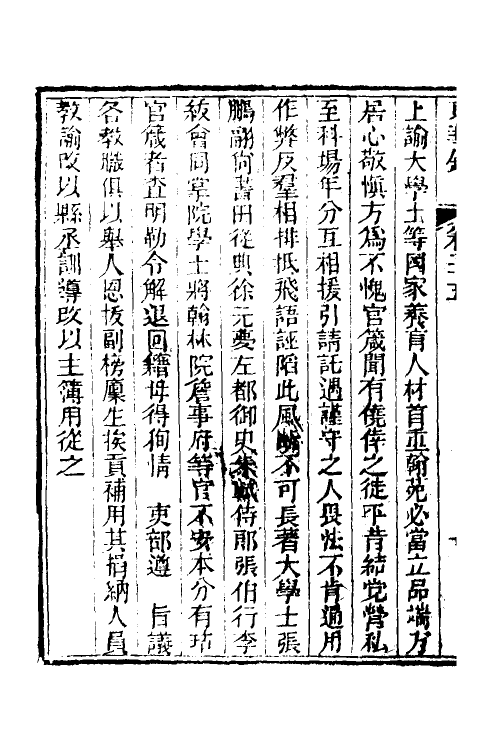 東華錄 卷二五
上諭大學士等國家養育人材首重翰苑必當立品端方
居心敬慎方為不愧官箴聞有僥倖之徒平昔結党營私
至科場年分互相援引請託遇謹守之人畏怯不肯通用
作弊反羣相排抵飛語誣陷此風斷不可長著大學士張
鵬翮尚書田從典徐元夢左都御史朱軾侍郎張伯行李
紱會同掌院學士將翰林院詹事府等官不安本分有玷
官箴者查明勒令解退回籍毋得徇情 吏部遵 旨議
各教職俱以舉人恩拔副榜廩生挨貢補用其捐納人員
教諭改以縣丞訓導改以主簿用從之